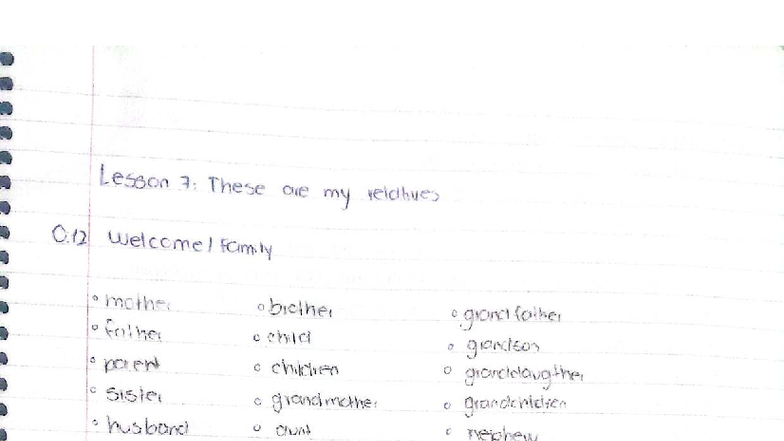 Lesson 7: These are my relatives
0.12 Welcome / Family
◦ mother ◦ brother ◦ grandfather
◦ father ◦ child ◦ grandson
◦ parent ◦ children ◦ granddaugther
◦ sister ◦ grandmother ◦ grandchildren
◦ husband ◦ aunt ◦ nephew